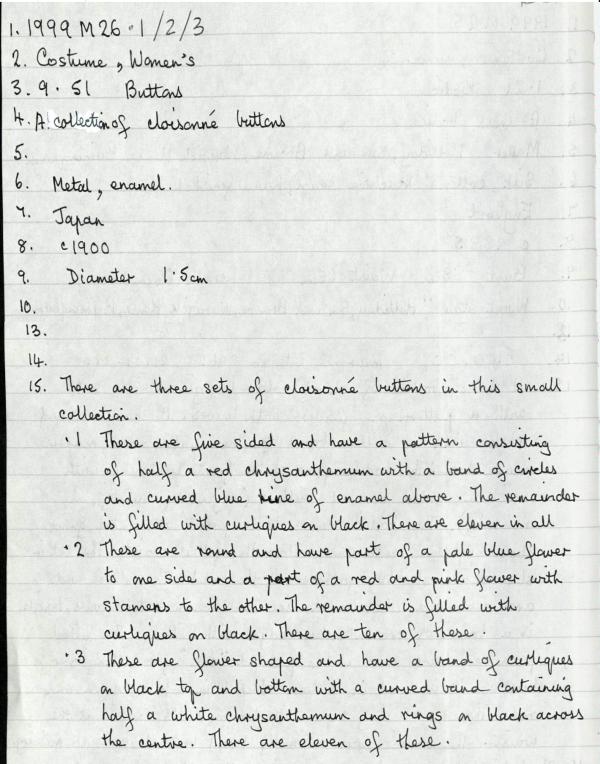 1. 1999 M26.1/2/3
2. Costume, Women's
3. 9.51 Buttons
4. A collection of cloisonné buttons
5.
6. Metal, enamel.
7. Japan
8. c1900
9. Diameter 1.5cm
10.
13.
14.
15. There are three sets of cloisonné buttons in this small
collection.
.1 These are five sided and have a pattern consisting
of half a red chrysanthemum with a band of circles
and curved blue line of enamel above. The remainder
is filled with curliques on black. There are eleven in all
.2 These are round and have part of a pale blue flower
to one side and a part of a red and pink flower with
stamens to the other. The remainder is filled with
curliques on black. There are ten of these.
.3 These are flower shaped and have a band of curliques
on black top and bottom with a curved band containing
half a white chrysanthemum and rings on black across
the centre. There are eleven of these.